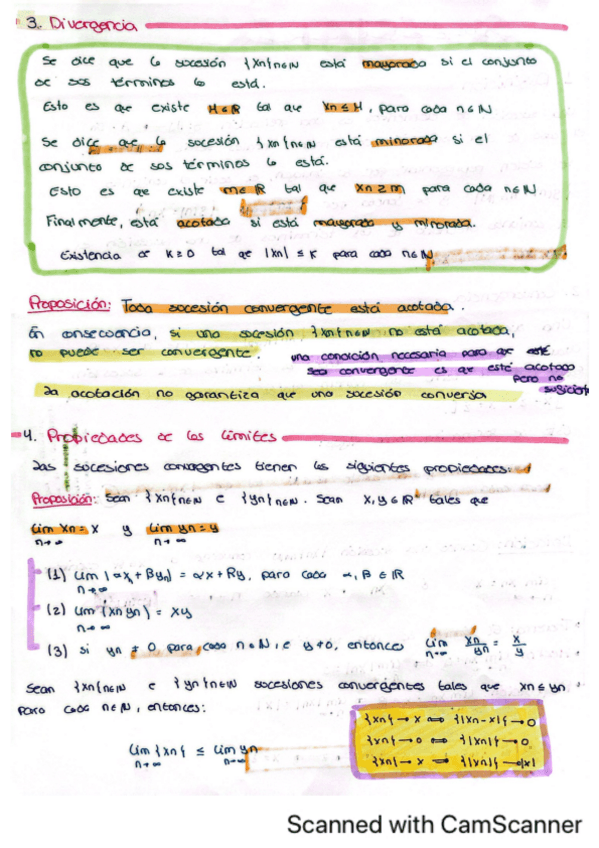 3. Divergencia
Se dice que la sucesión {xn}n∈N está mayorada si el conjunto
de sus términos lo está.
Esto es que existe M∈R tal que xn ≤ M, para cada n∈N
Se dice que la sucesión {xn}n∈N está minorada si el
conjunto de sus términos lo está.
Esto es que existe m∈R tal que xn ≥ m para cada n∈N
Finalmente, está acotada si está mayorada y minorada.
Existencia de K≥0 tal que |xn| ≤ K para cada n∈N
Proposición: Toda sucesión convergente está acotada.
En consecuencia, si una sucesión {xn}n∈N no está acotada,
no puede ser convergente. una condición necesaria para que este
sea convergente es que esté acotada
pero no
La acotación no garantiza que una sucesión converja
4. Propiedades de los límites
Las sucesiones convergentes tienen las siguientes propiedades:
Proposición: Sean {xn}n∈N e {yn}n∈N. Sean x,y∈R tales que
lim xn = x y lim yn = y
n→∞ n→∞
(1) lim (αxn + βyn) = αx + βy, para cada α, β ∈ R
n→∞
(2) lim (xn yn) = xy
n→∞
(3) si yn ≠ 0 para cada n∈N, e y≠0, entonces lim xn/yn = x/y
n→∞
Sean {xn}n∈N e {yn}n∈N sucesiones convergentes tales que xn ≤ yn
para cada n∈N, entonces:
lim {xn} ≤ lim yn
n→∞ n→∞
{xn} → x ⟺ {|xn-x|} → 0
{xn} → 0 ⟺ {|xn|} → 0
{xn} → x ⟹ {|xn|} → |x|
Scanned with CamScanner